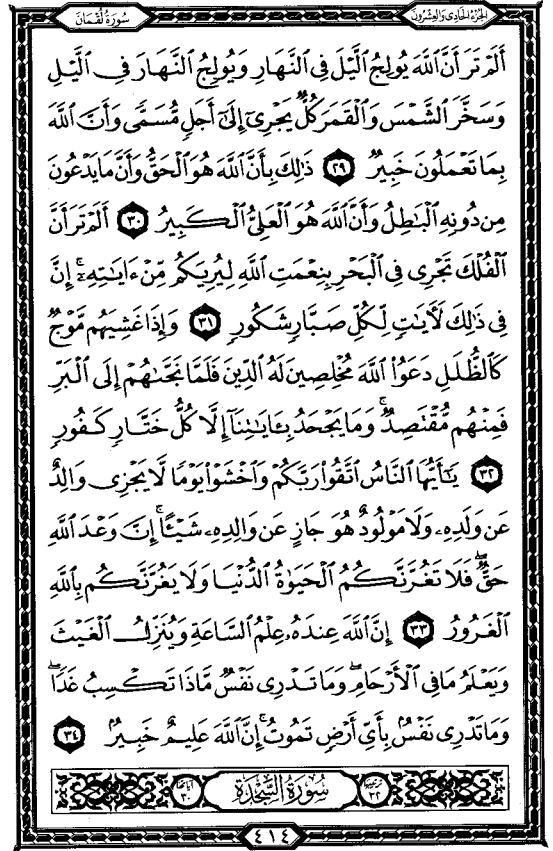 الجزء الحادي والعشرون
سورة لقمان
أَلَمْ تَرَ أَنَّ ٱللَّهَ يُولِجُ ٱلَّيْلَ فِى ٱلنَّهَارِ وَيُولِجُ ٱلنَّهَارَ فِى ٱلَّيْلِ
وَسَخَّرَ ٱلشَّمْسَ وَٱلْقَمَرَ كُلٌّ يَجْرِىٓ إِلَىٰٓ أَجَلٍ مُّسَمًّى وَأَنَّ ٱللَّهَ
بِمَا تَعْمَلُونَ خَبِيرٌ ٢٩ ذَٰلِكَ بِأَنَّ ٱللَّهَ هُوَ ٱلْحَقُّ وَأَنَّ مَا يَدْعُونَ
مِن دُونِهِ ٱلْبَٰطِلُ وَأَنَّ ٱللَّهَ هُوَ ٱلْعَلِىُّ ٱلْكَبِيرُ ٣٠ أَلَمْ تَرَ أَنَّ
ٱلْفُلْكَ تَجْرِى فِى ٱلْبَحْرِ بِنِعْمَتِ ٱللَّهِ لِيُرِيَكُم مِّنْ ءَايَٰتِهِۦٓ ۚ إِنَّ
فِى ذَٰلِكَ لَءَايَٰتٍ لِّكُلِّ صَبَّارٍ شَكُورٍ ٣١ وَإِذَا غَشِيَهُم مَّوْجٌ
كَٱلظُّلَلِ دَعَوُا۟ ٱللَّهَ مُخْلِصِينَ لَهُ ٱلدِّينَ فَلَمَّا نَجَّىٰهُمْ إِلَى ٱلْبَرِّ
فَمِنْهُم مُّقْتَصِدٌ ۚ وَمَا يَجْحَدُ بِـَٔايَٰتِنَآ إِلَّا كُلُّ خَتَّارٍ كَفُورٍ
٣٢ يَٰٓأَيُّهَا ٱلنَّاسُ ٱتَّقُوا۟ رَبَّكُمْ وَٱخْشَوْا۟ يَوْمًا لَّا يَجْزِى وَالِدٌ
عَن وَلَدِهِۦ وَلَا مَوْلُودٌ هُوَ جَازٍ عَن وَالِدِهِۦ شَيْـًٔا ۚ إِنَّ وَعْدَ ٱللَّهِ
حَقٌّ ۖ فَلَا تَغُرَّنَّكُمُ ٱلْحَيَوٰةُ ٱلدُّنْيَا وَلَا يَغُرَّنَّكُم بِٱللَّهِ
ٱلْغَرُورُ ٣٣ إِنَّ ٱللَّهَ عِندَهُۥ عِلْمُ ٱلسَّاعَةِ وَيُنَزِّلُ ٱلْغَيْثَ
وَيَعْلَمُ مَا فِى ٱلْأَرْحَامِ ۖ وَمَا تَدْرِى نَفْسٌ مَّاذَا تَكْسِبُ غَدًا ۖ
وَمَا تَدْرِى نَفْسٌۢ بِأَىِّ أَرْضٍ تَمُوتُ ۚ إِنَّ ٱللَّهَ عَلِيمٌ خَبِيرٌۢ ٣٤
ترتيبها ٣٢ سُورَةُ السَّجْدَةِ آياتها ٣٠
٤١٤